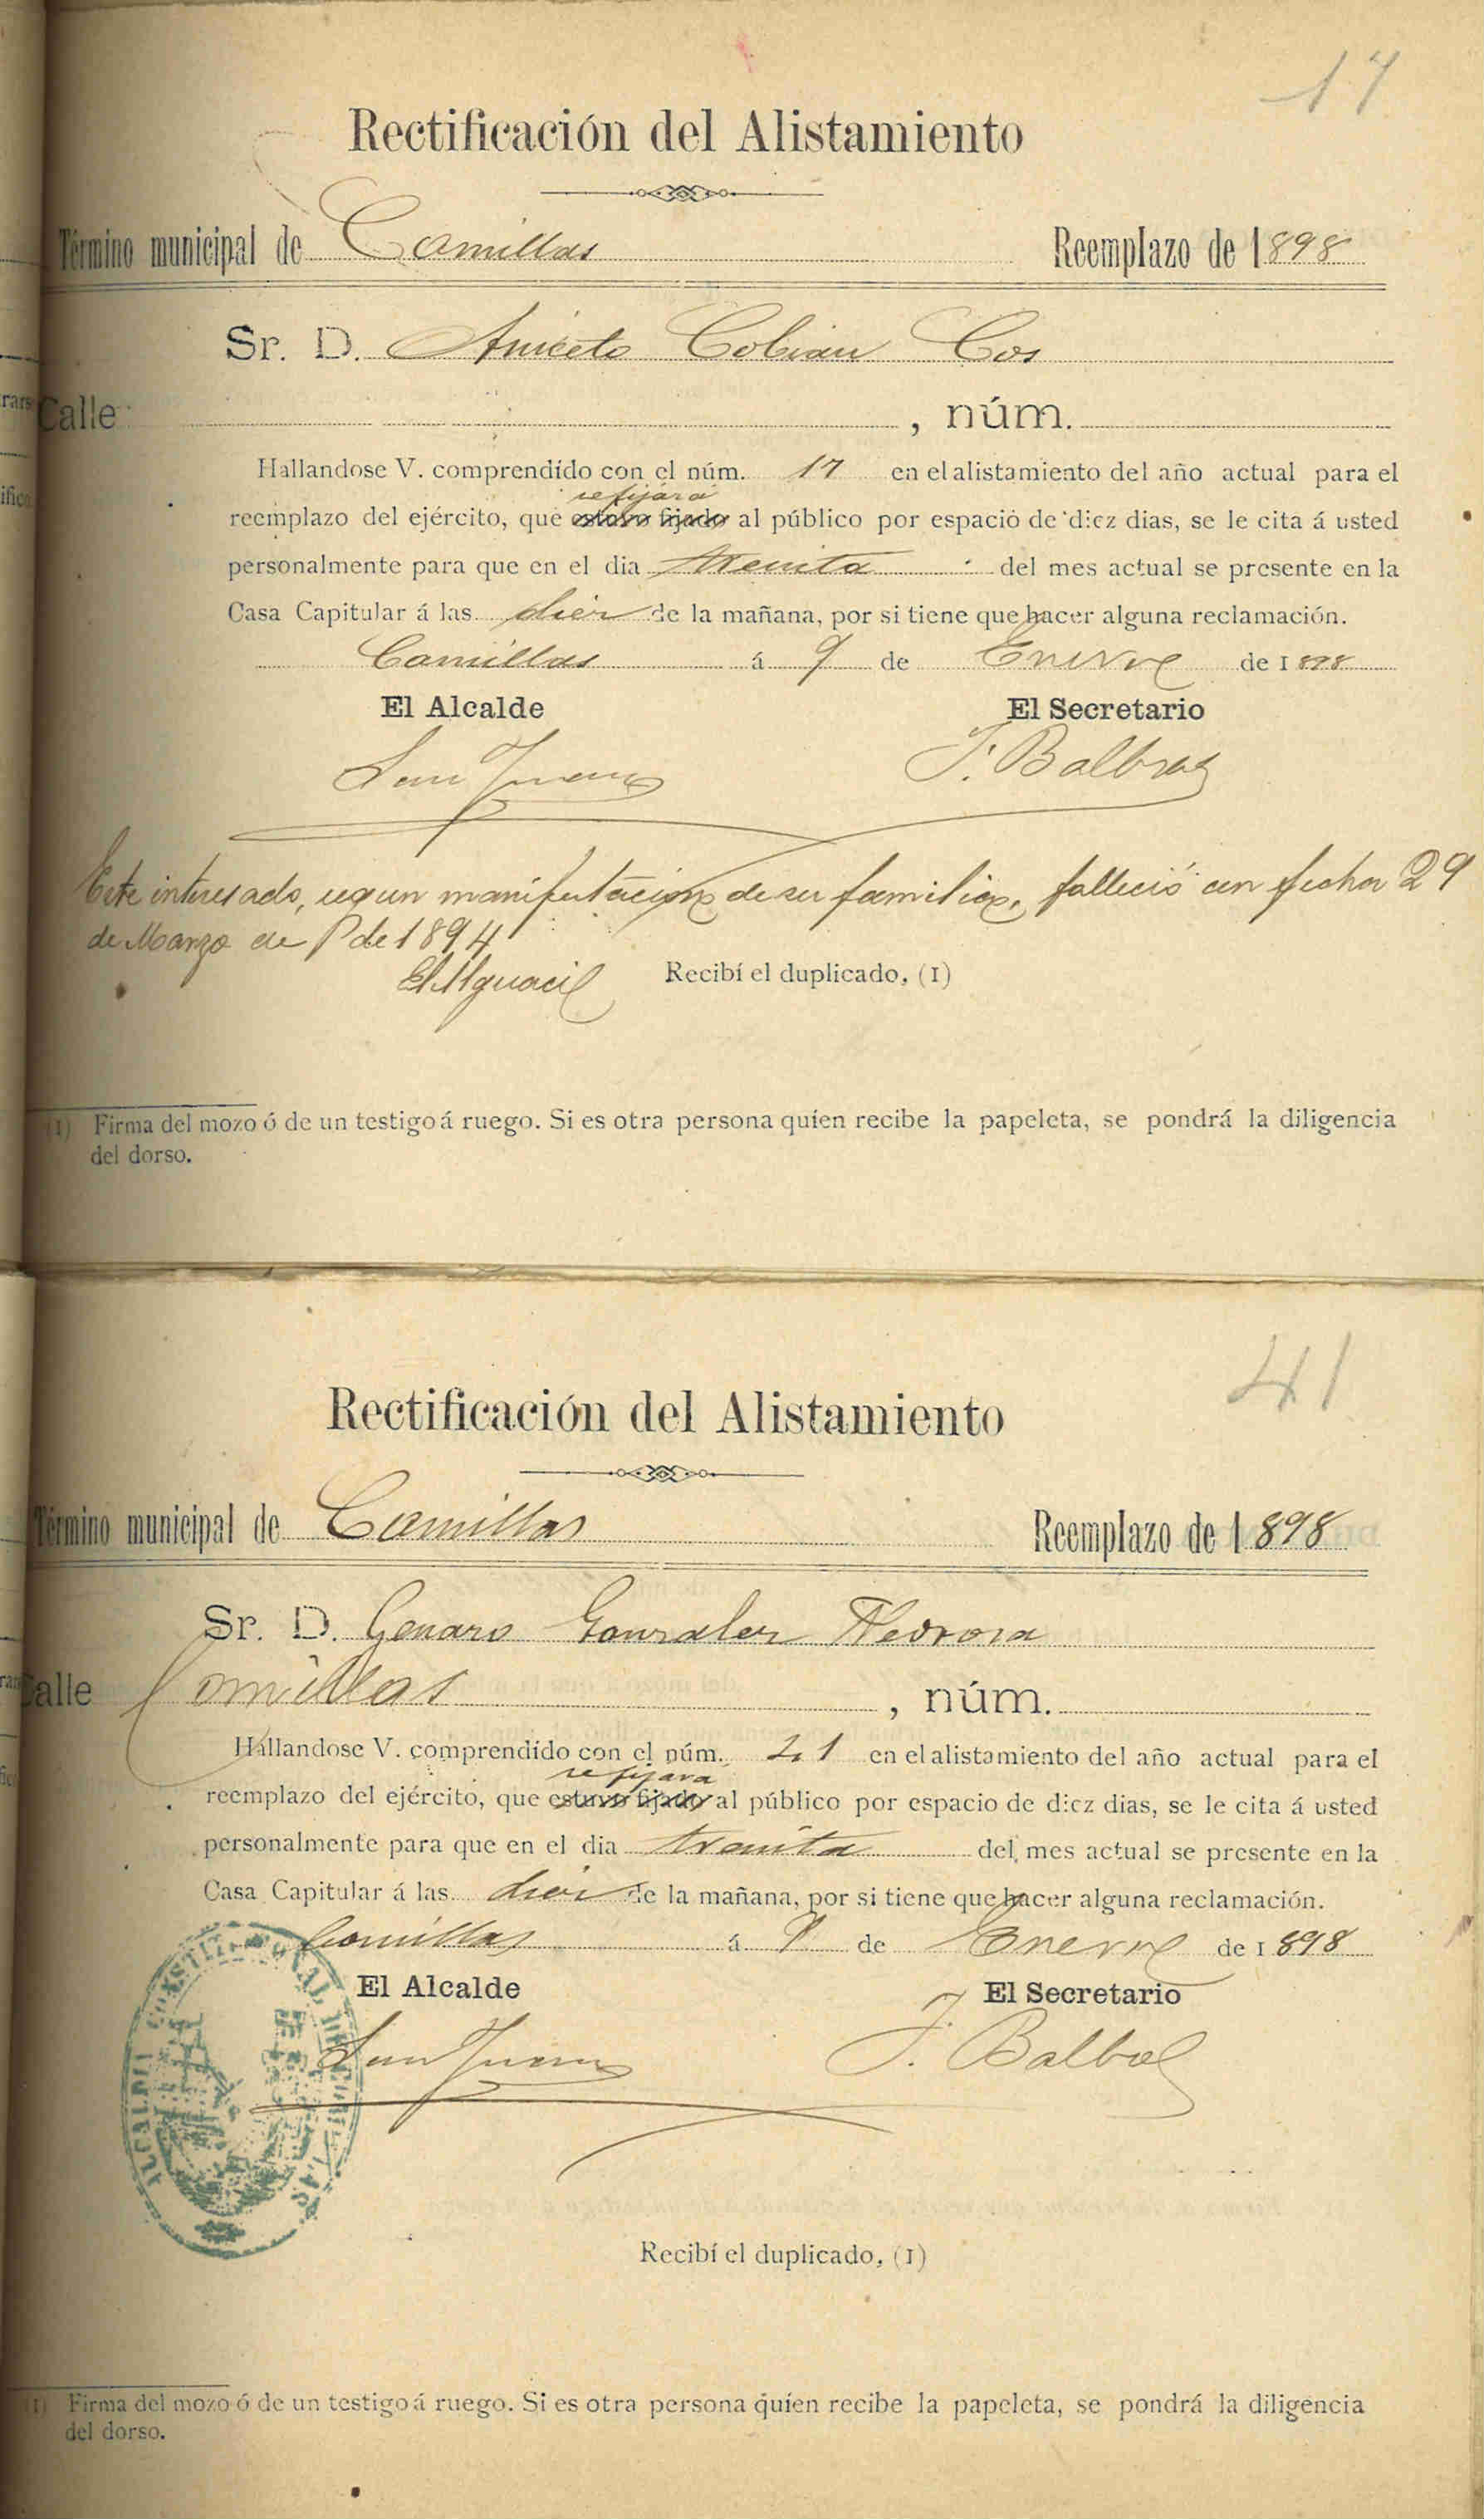 17
Rectificación del Alistamiento
Término municipal de Comillas Reemplazo de 1898
Sr. D. Aniceto Cobian Cos
Calle , núm.
Hallandose V. comprendido con el núm. 17 en el alistamiento del año actual para el
se fijará
reemplazo del ejército, que estuvo fijado al público por espacio de diez dias, se le cita á usted
personalmente para que en el dia treinta del mes actual se presente en la
Casa Capitular á las diez de la mañana, por si tiene que hacer alguna reclamación.
Comillas á 9 de Enero de 1898
El Alcalde El Secretario
San Juan J. Balbas
Este interesado, segun manifestación de su familia, falleció con fecha 29
de Marzo de de 1894
El Alguacil Recibí el duplicado, (1)
(1) Firma del mozo ó de un testigo á ruego. Si es otra persona quíen recibe la papeleta, se pondrá la diligencia
del dorso.
41
Rectificación del Alistamiento
Término municipal de Comillas Reemplazo de 1898
Sr. D. Genaro Gonzalez
Calle Comillas , núm.
Hallandose V. comprendido con el núm. 41 en el alistamiento del año actual para el
se fijara
reemplazo del ejército, que estuvo fijado al público por espacio de diez dias, se le cita á usted
personalmente para que en el dia treinta del mes actual se presente en la
Casa Capitular á las diez de la mañana, por si tiene que hacer alguna reclamación.
Comillas á 9 de Enero de 1898
El Alcalde El Secretario
San Juan J. Balbas
Recibí el duplicado, (1)
(1) Firma del mozo ó de un testigo á ruego. Si es otra persona quíen recibe la papeleta, se pondrá la diligencia
del dorso.